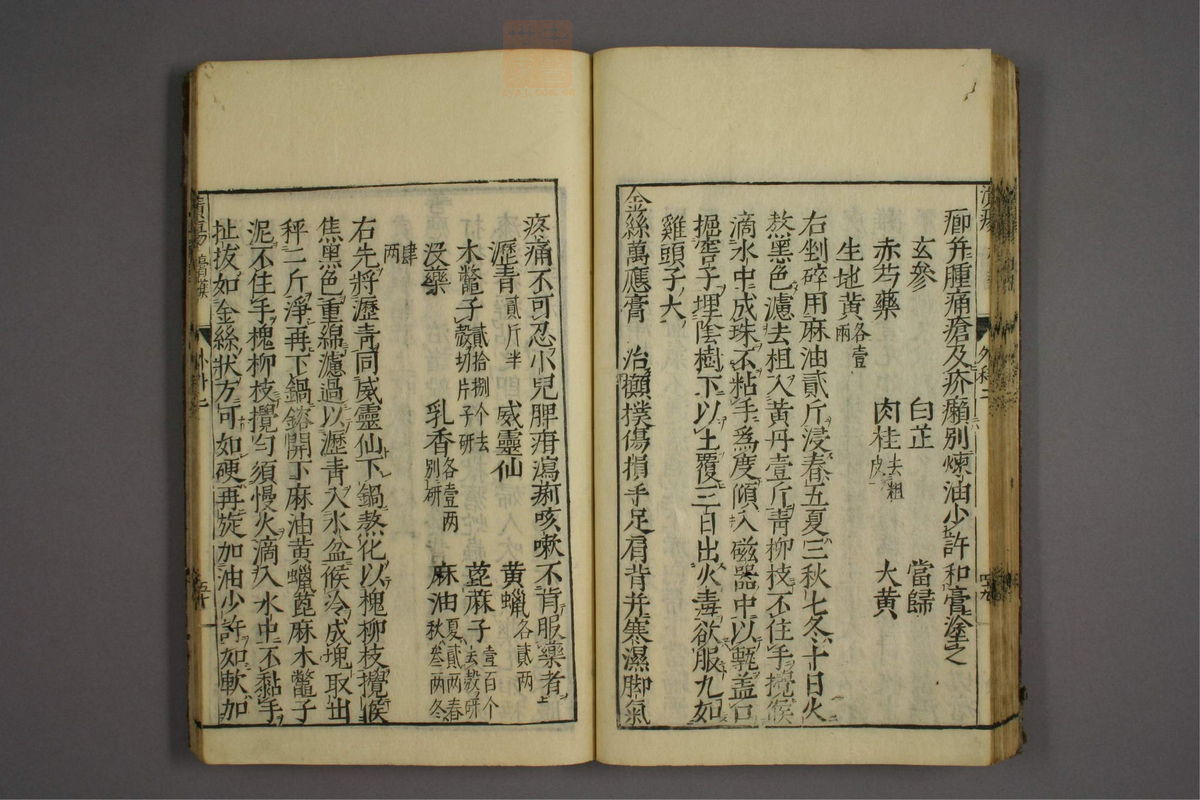 癤并腫痛瘡及疥癩別煉油少許和膏塗之
玄參 白芷 當歸
赤芍藥 肉桂去粗皮 大黃
生地黃各壹兩
右剉碎用麻油貳斤浸春五夏三秋七冬十日火
熬黑色濾去柤入黃丹壹斤靑柳枝不住手攪候
滴水中成珠不粘手爲度傾入磁器中以甎盖口
掘窖子埋陰樹下以土覆三日出火毒欲服九如
雞頭子大
金絲萬應膏 治攧撲傷損手足肩背并寒濕脚氣
疼痛不可忍小兒脾疳瀉痢咳嗽不肯服藥者
瀝青貳斤半 威靈仙 黃蠟各貳兩
木鱉子貳拾捌个去殼切片子研 蓖麻子壹百个去殼研
沒藥 乳香各壹兩別研 麻油夏貳兩春秋叁兩冬
肆兩
右先將瀝靑同威靈仙下鍋熬化以槐柳枝攪候
焦黑色重綿濾過以瀝青入水盆候冷成塊取出
秤二斤淨再下鍋鎔開下麻油黃蠟蓖麻木鱉子
泥不住手槐柳枝攪勻須慢火滴入水中不黏手
扯拔如金絲狀方可如硬再旋加油少許如軟加